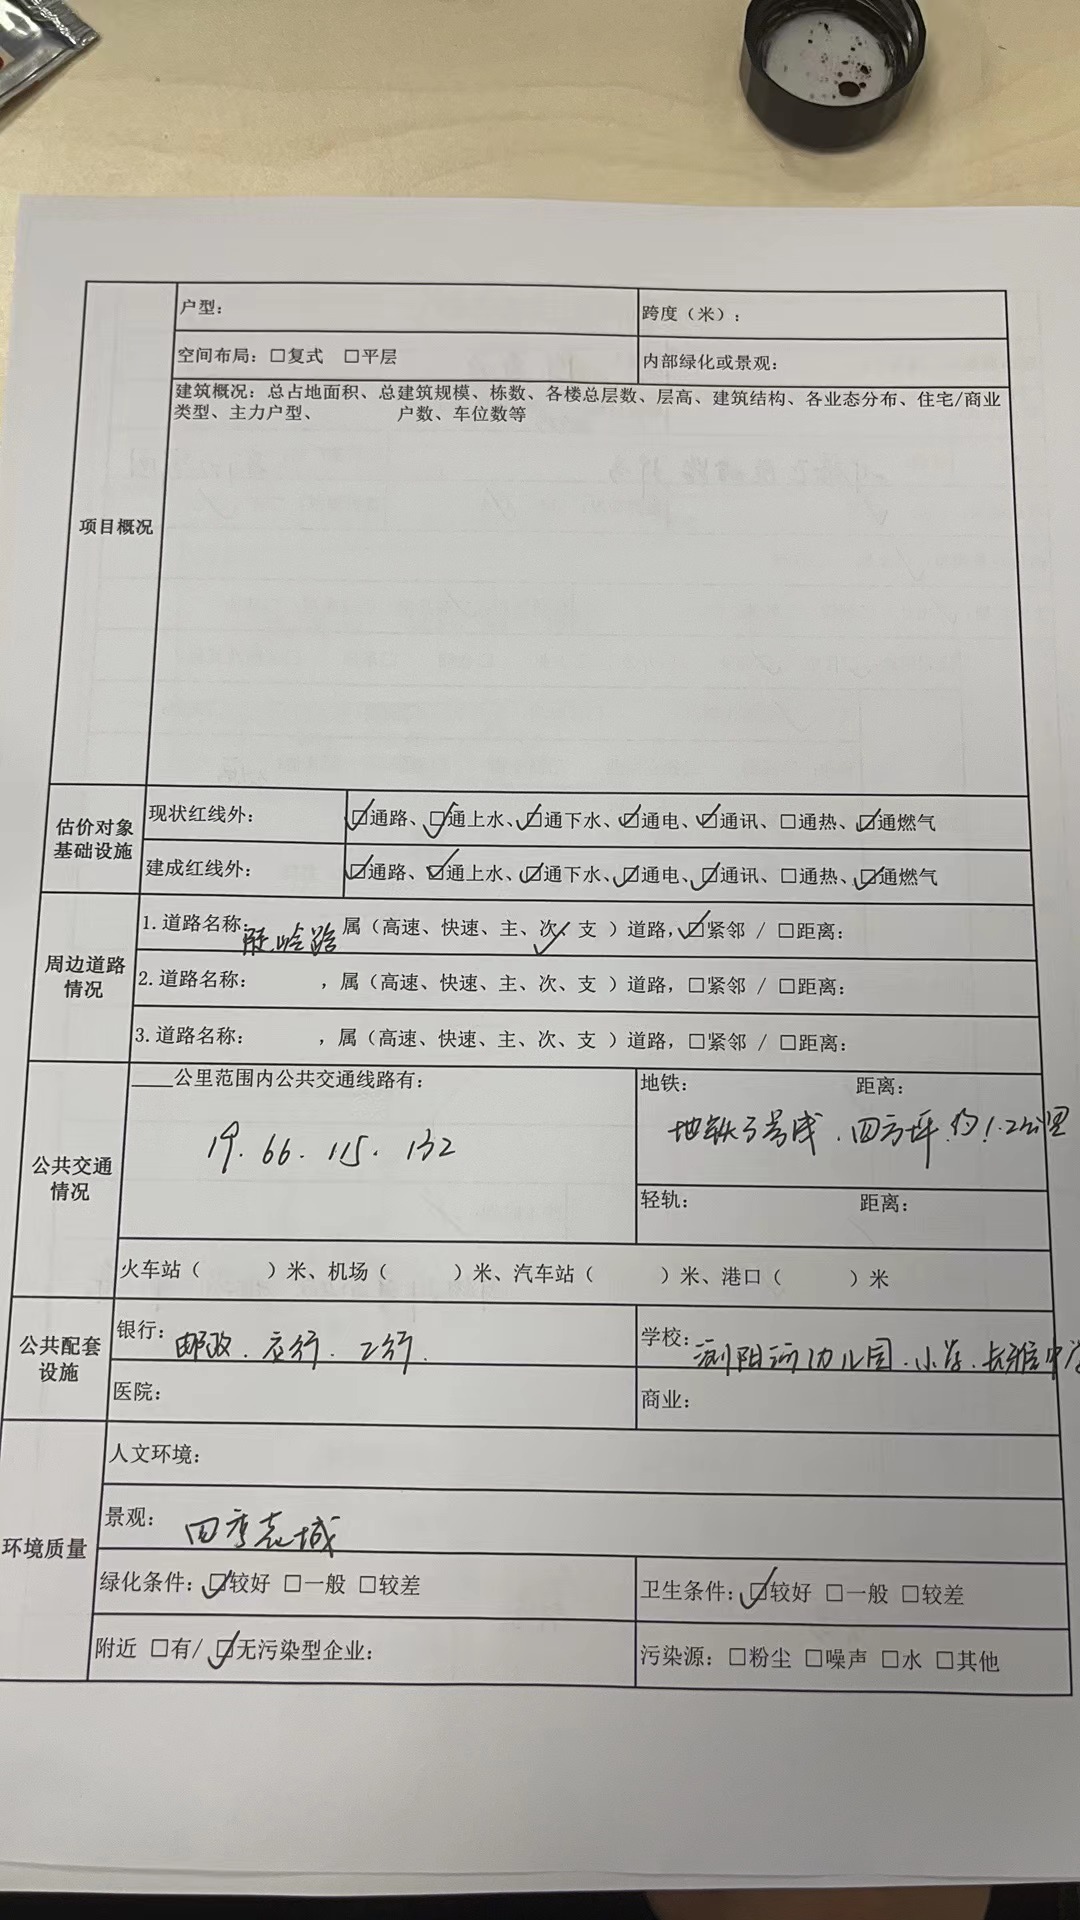 户型：
跨度（米）：
空间布局：☐复式 ☐平层
内部绿化或景观：
项目概况
建筑概况：总占地面积、总建筑规模、栋数、各楼总层数、层高、建筑结构、各业态分布、住宅/商业
类型、主力户型、 户数、车位数等
估价对象
基础设施
现状红线外：
☑通路、☑通上水、☑通下水、☑通电、☑通讯、☐通热、☑通燃气
建成红线外：
☑通路、☑通上水、☑通下水、☑通电、☑通讯、☐通热、☑通燃气
周边道路
情况
1.道路名称： 路 属（高速、快速、主、次✓、支 ）道路，☑紧邻 / ☐距离：
2.道路名称： ，属（高速、快速、主、次、支 ）道路，☐紧邻 / ☐距离：
3.道路名称： ，属（高速、快速、主、次、支 ）道路，☐紧邻 / ☐距离：
公共交通
情况
____公里范围内公共交通线路有：
19. 66. 115. 132
地铁： 距离：
地铁3号线. 四方坪 约1.2公里
轻轨： 距离：
火车站（ ）米、机场（ ）米、汽车站（ ）米、港口（ ）米
公共配套
设施
银行：邮政. 农行. 工行.
学校：浏阳河幼儿园. 小学. 长雅中学
医院：
商业：
环境质量
人文环境：
景观：四季花城
绿化条件：☑较好 ☐一般 ☐较差
卫生条件：☑较好 ☐一般 ☐较差
附近 ☐有/ ☑无污染型企业：
污染源：☐粉尘 ☐噪声 ☐水 ☐其他